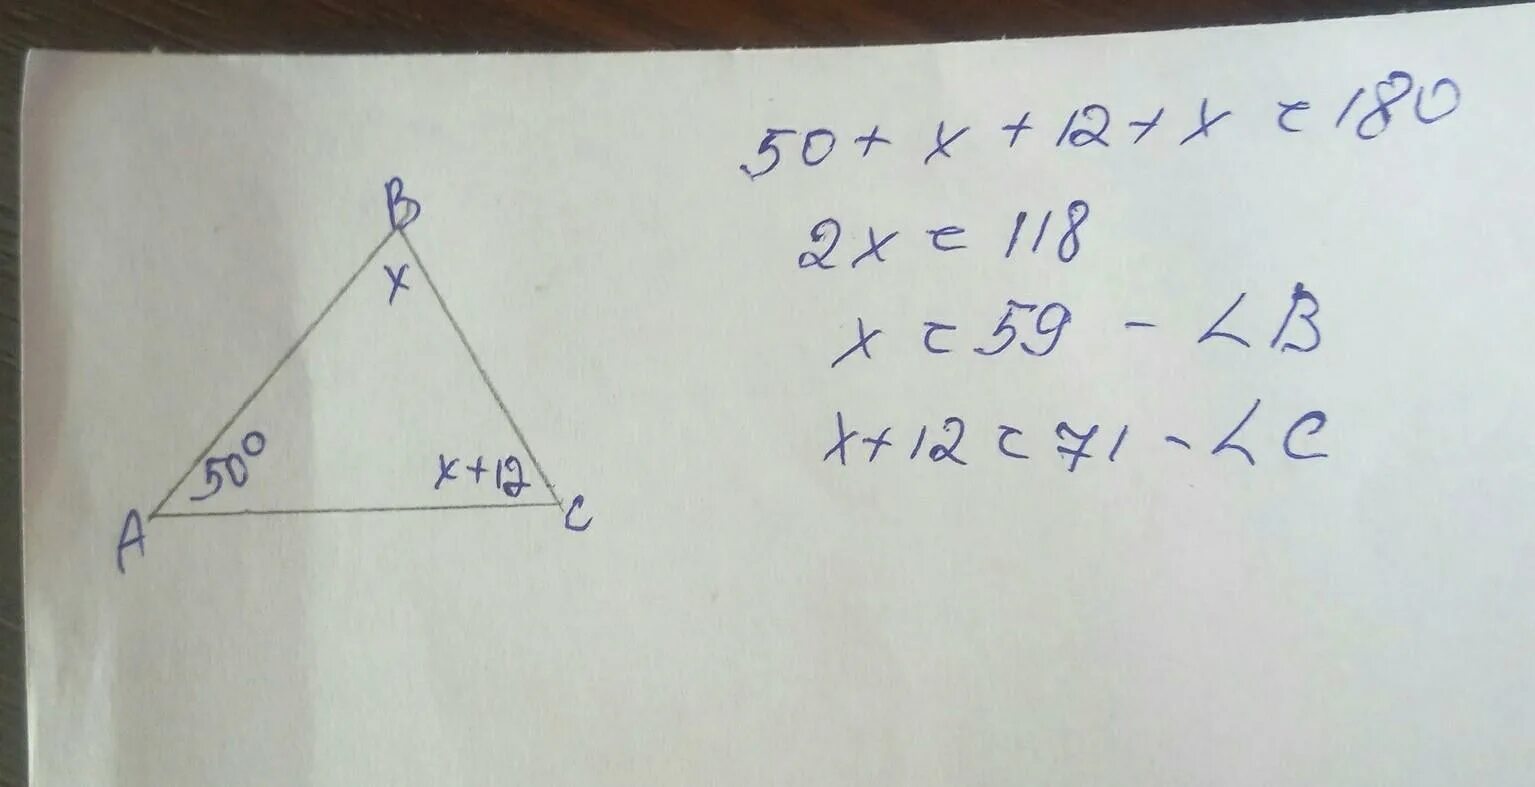 B
x
50°
x+12
A
C
50 + x + 12 + x = 180
2x = 118
x = 59 - ∠B
x+12 = 71 - ∠C